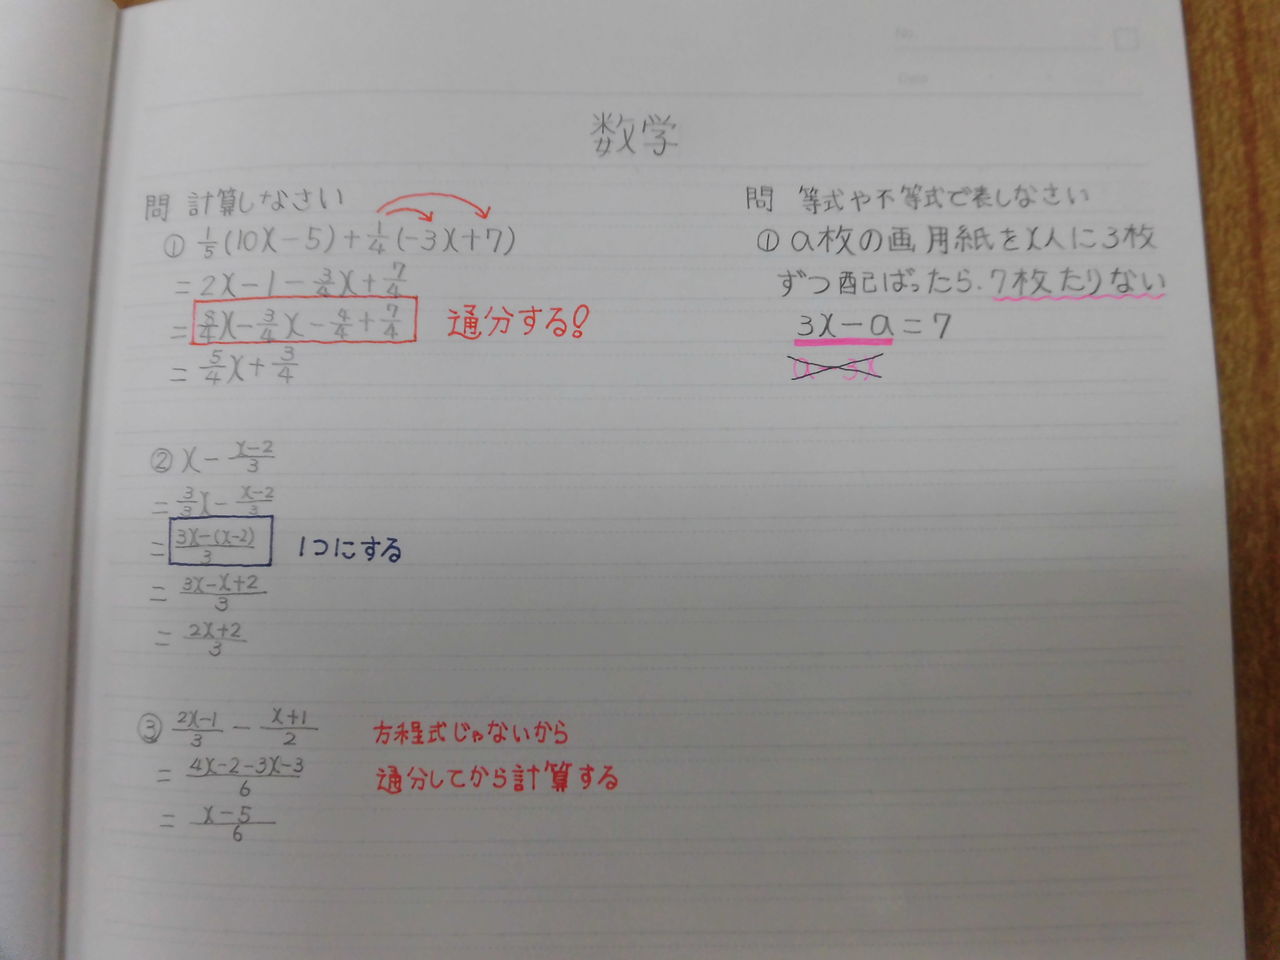 No.
Date
数学
問 計算しなさい
① 1/5(10x-5)+1/4(-3x+7)
=2x-1-3/4x+7/4
=8/4x-3/4x-4/4+7/4 通分する!
=5/4x+3/4
② x-(x-2)/3
=3/3x-(x-2)/3
=(3x-(x-2))/3 1つにする
=(3x-x+2)/3
=(2x+2)/3
③ (2x-1)/3-(x+1)/2 方程式じゃないから
=(4x-2-3x-3)/6 通分してから計算する
=(x-5)/6
問 等式や不等式で表しなさい
① a枚の画用紙をx人に3枚
ずつ配ばったら、7枚たりない
3x-a=7
a-3x